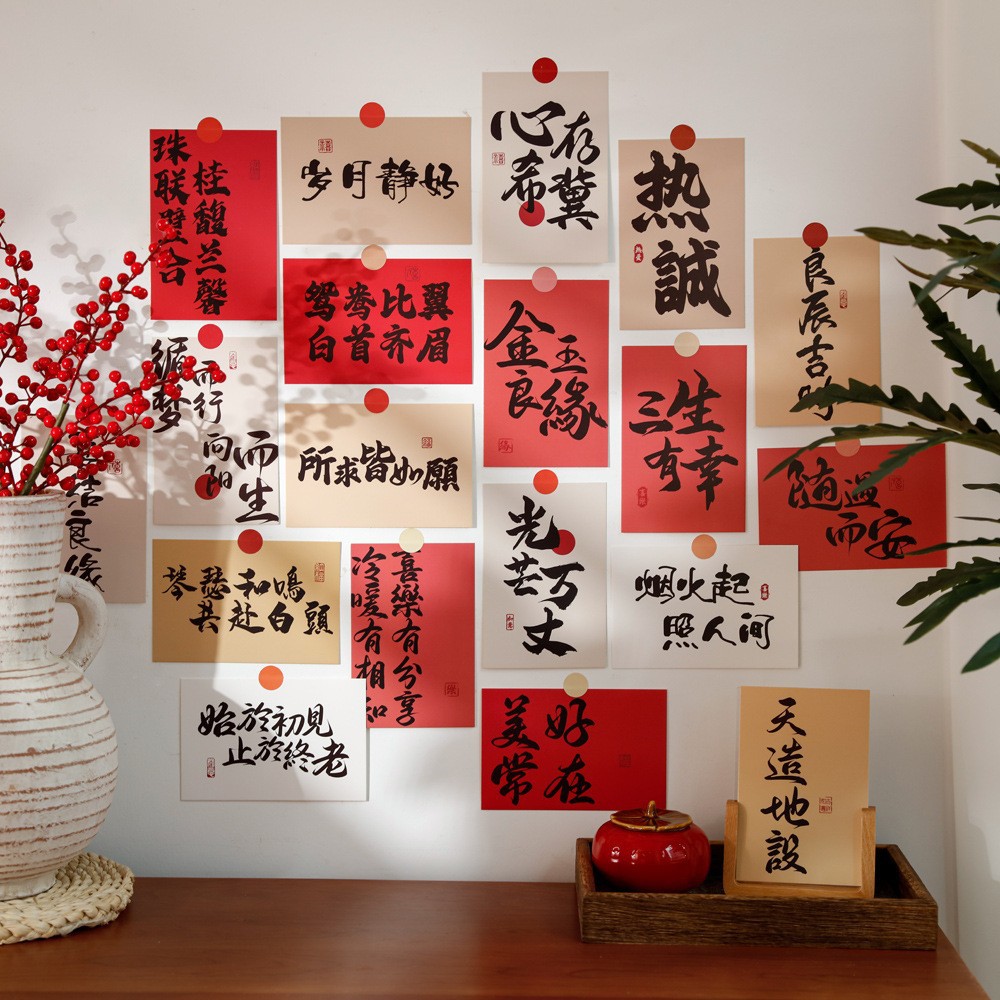 珠联璧合
桂馥兰馨
岁月静好
心存
希冀
热
誠
良辰吉时
鸳鸯比翼
白首齐眉
金玉
良緣
三生
有幸
循梦
而行
向阳
而生
所求皆如願
随遇
而安
结良缘
琴瑟和鳴
共赴白頭
喜樂有分享
冷暖有相知
光芒
万丈
烟火起
照人间
始於初見
止於終老
美好
常在
天造地設